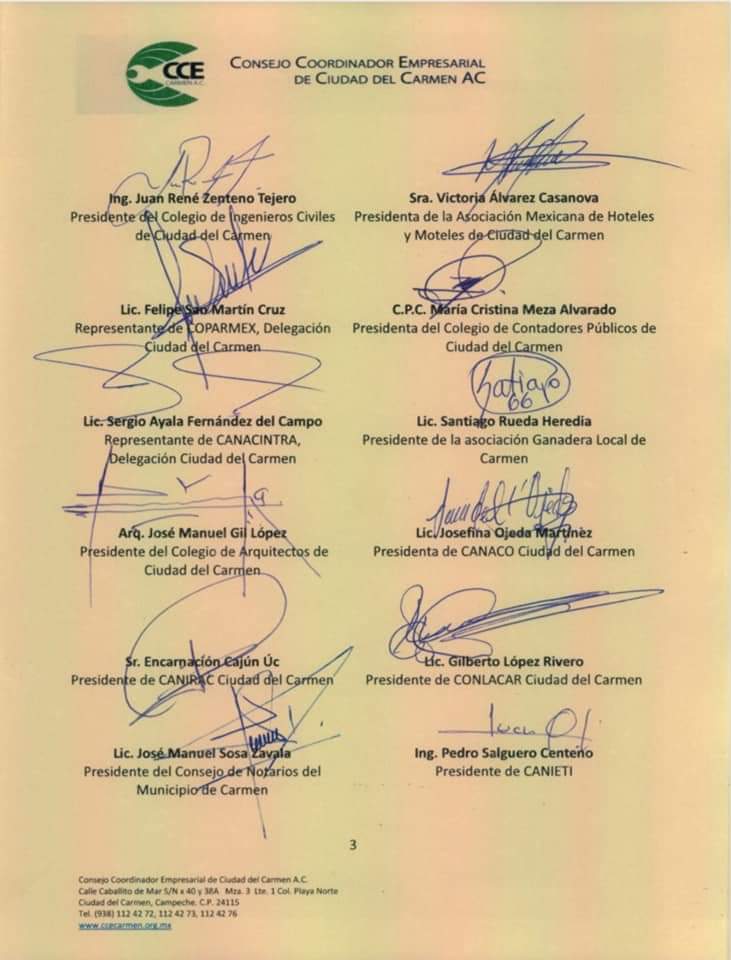 CCE
CARMEN A.C.
CONSEJO COORDINADOR EMPRESARIAL
DE CIUDAD DEL CARMEN AC
Ing. Juan René Zenteno Tejero
Presidente del Colegio de Ingenieros Civiles
de Ciudad del Carmen
Sra. Victoria Álvarez Casanova
Presidenta de la Asociación Mexicana de Hoteles
y Moteles de Ciudad del Carmen
Lic. Felipe Sao Martín Cruz
Representante de COPARMEX, Delegación
Ciudad del Carmen
C.P.C. María Cristina Meza Alvarado
Presidenta del Colegio de Contadores Públicos de
Ciudad del Carmen
Santiago
66
Lic. Sergio Ayala Fernández del Campo
Representante de CANACINTRA,
Delegación Ciudad del Carmen
Lic. Santiago Rueda Heredia
Presidente de la asociación Ganadera Local de
Carmen
Arq. José Manuel Gil López
Presidente del Colegio de Arquitectos de
Ciudad del Carmen
Lic. Josefina Ojeda Martínez
Presidenta de CANACO Ciudad del Carmen
Sr. Encarnación Cajún Úc
Presidente de CANIRAC Ciudad del Carmen
Lic. Gilberto López Rivero
Presidente de CONLACAR Ciudad del Carmen
Lic. José Manuel Sosa Zavala
Presidente del Consejo de Notarios del
Municipio de Carmen
Ing. Pedro Salguero Centeno
Presidente de CANIETI
3
Consejo Coordinador Empresarial de Ciudad del Carmen A.C.
Calle Caballito de Mar S/N x 40 y 38A Mza. 3 Lte. 1 Col. Playa Norte
Ciudad del Carmen, Campeche. C.P. 24115
Tel. (938) 112 42 72, 112 42 73, 112 42 76
www.ccecarmen.org.mx